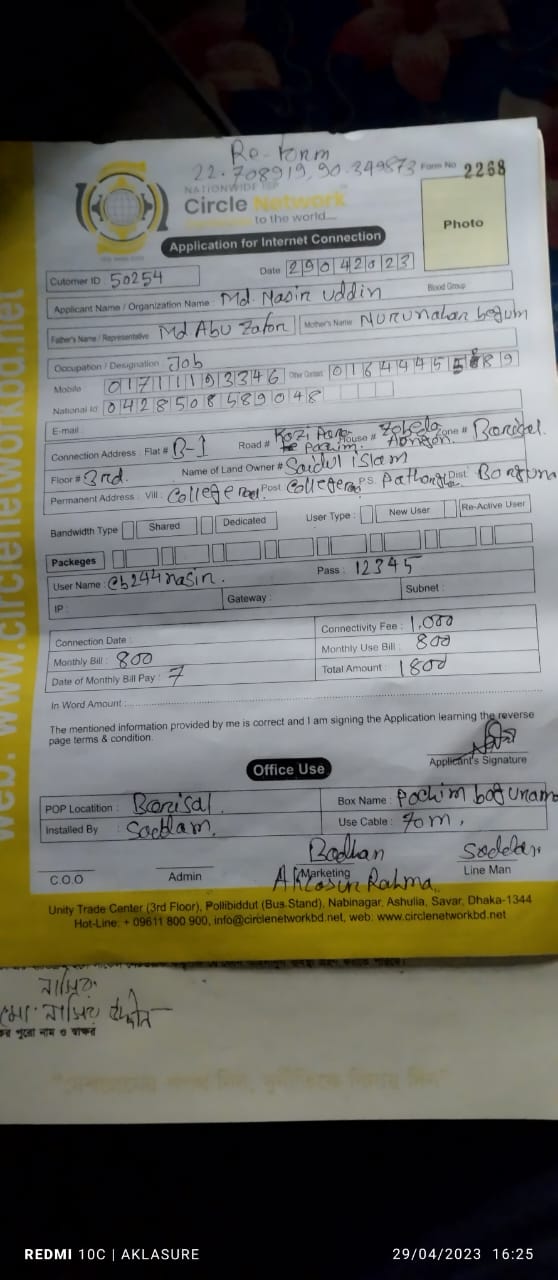 Re-form
22.708919, 90.349873 Form No 2268
NATIONWIDE ISP
Circle Network
to the world....
Photo
Application for Internet Connection
Cutomer ID 50254
Date 29042023
Applicant Name / Organization Name : Md. Nasir Uddin Blood Group
Father's Name / Representative Md Abu Zafor Mother's Name Nurunahar begum
Occupation / Designation : Job
Mobile 01711193346 Other Contact
National Id : 0428508589048
E-mail
Connection Address : Flat # B-1 Road # House # Zone # Barisal.
Floor # 3rd. Name of Land Owner # Saidul islam
Permanent Address : Vill : College Post College P.S. Dist. Borguna
Bandwidth Type Shared Dedicated User Type : New User Re-Active User
Packeges
User Name : cb244nasir. Pass : 12345
IP : Gateway : Subnet :
Connection Date : Connectivity Fee : 1,000
Monthly Bill : 800 Monthly Use Bill : 800
Date of Monthly Bill Pay : 7 Total Amount : 1800
In Word Amount :
The mentioned information provided by me is correct and I am signing the Application learning the reverse
page terms & condition.
Applicant's Signature
Office Use
POP Locatition : Barisal Box Name : Pochim bogunam
Installed By : Saddam. Use Cable : 70m.
C.O.O Admin Marketing Line Man
Unity Trade Center (3rd Floor), Pollibiddut (Bus Stand), Nabinagar, Ashulia, Savar, Dhaka-1344
Hot-Line: + 09611 800 900, info@circlenetworkbd.net, web: www.circlenetworkbd.net
web: www.circlenetworkbd.net
নাসির
মো: নাসির উদ্দীন
পুরো নাম ও স্বাক্ষর
REDMI 10C | AKLASURE 29/04/2023 16:25